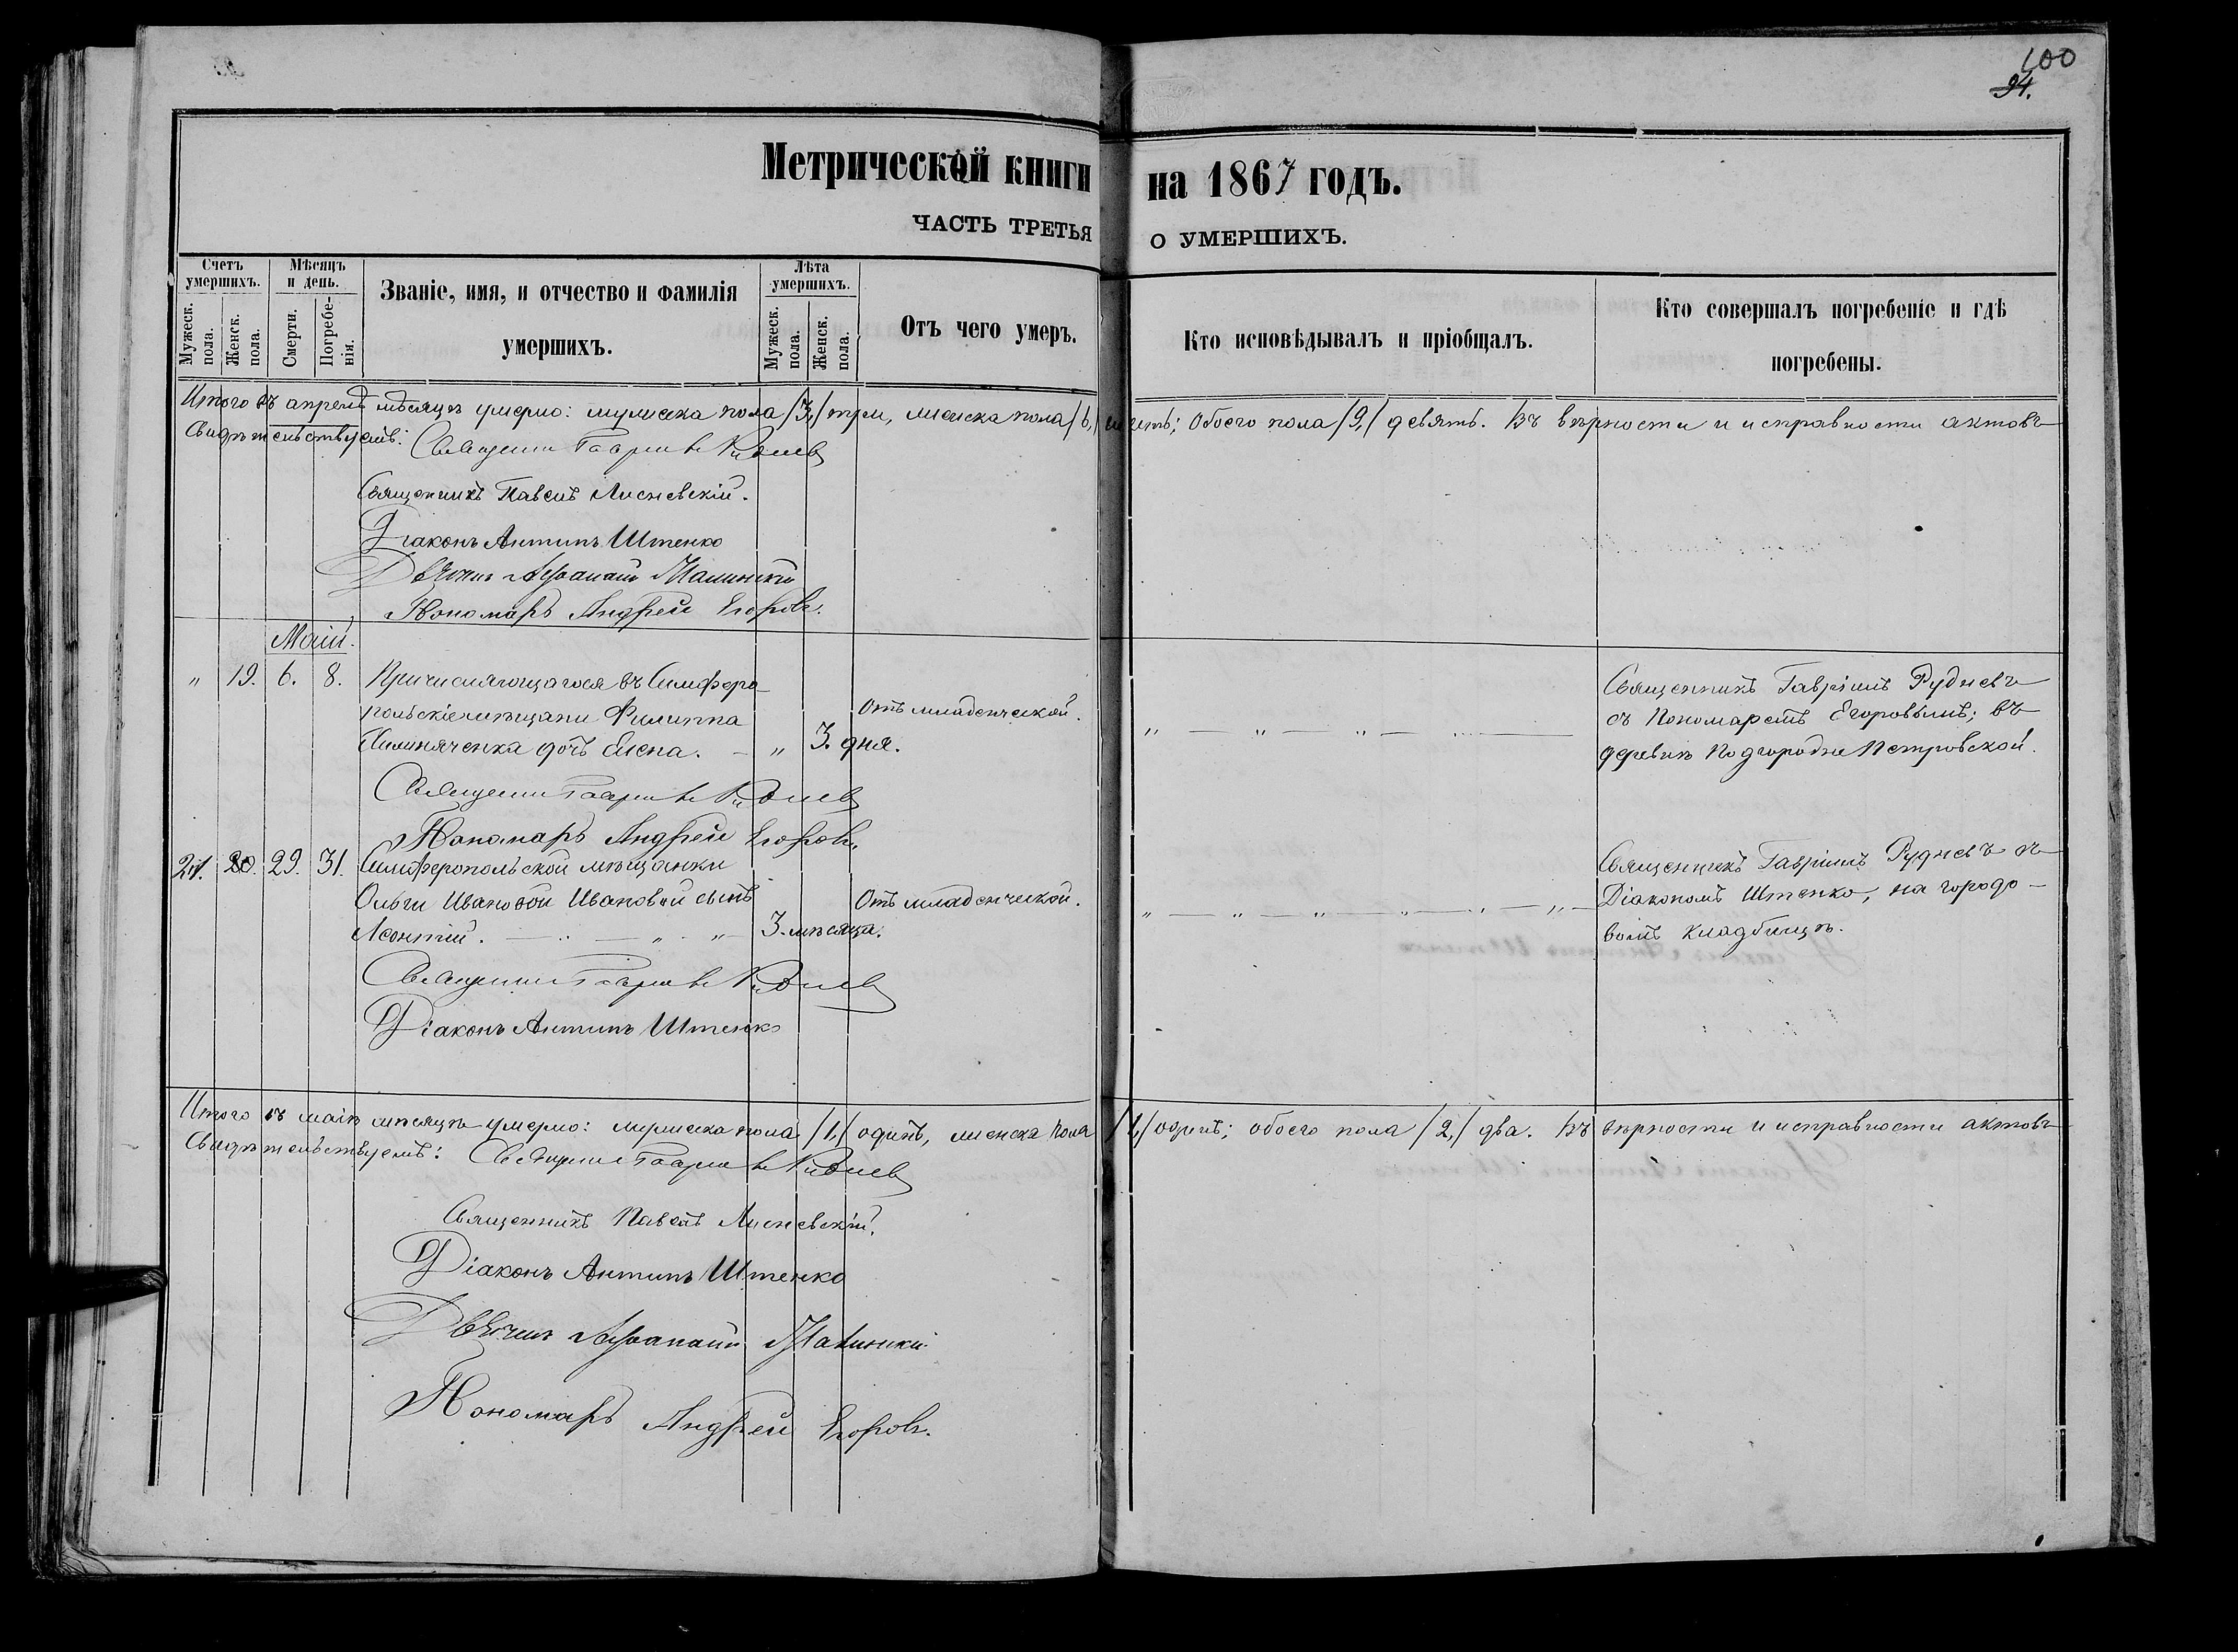 100
94.
Метрической книги на 1867 годъ.
ЧАСТЬ ТРЕТЬЯ О УМЕРШИХЪ.
Счетъ умершихъ.
Мужеск. пола.
Женск. пола.
Мѣсяцъ и день.
Смерти.
Погребенія.
Званіе, имя, и отчество и фамилія
умершихъ.
Лѣта умершихъ.
Мужеск. пола.
Женск. пола.
Отъ чего умеръ.
Кто исповѣдывалъ и пріобщалъ.
Кто совершалъ погребеніе и гдѣ
погребены.
Итого въ апрелѣ мѣсяцѣ умерло: мужеска пола /3,/ три, женска пола /6,/ шесть; обоего пола /9,/ девять. Въ вѣрности и исправности актовъ
Свидѣтельствуемъ: Священникъ Гавріилъ Рудневъ
Священникъ Павелъ Лисневскій.
Діаконъ Антипъ Штенко
Дьячекъ Афанасій
Пономарь Андрей Егоровъ.
Маій.
„ 19. 6. 8. Причисляющагося въ Симферо-
польскіе мѣщане Филиппа
дочь Елена. – „ 3. дня.
Отъ младенческой.
„ — „ — „ —
Священникъ Гавріилъ Рудневъ
съ Пономаремъ Егоровымъ; въ
деревнѣ Подгородне Петровской.
Священникъ Гавріилъ Рудневъ
Пономарь Андрей Егоровъ
21. 20. 29. 31. Симферопольской мѣщанки
Ольги Ивановой Ивановой сынъ
Леонтій. — „ — „ „ 3. мѣсяца.
Отъ младенческой.
„ — „ — „ — „ — „ — „ —
Священникъ Гавріилъ Рудневъ съ
Діакономъ Штенко, на городо-
вомъ кладбищѣ.
Священникъ Гавріилъ Рудневъ
Діаконъ Антипъ Штенко
Итого въ маіѣ мѣсяцѣ умерло: мужеска пола /1,/ одинъ, женска пола /1,/ одинъ; обоего пола /2,/ два. Въ вѣрности и исправности актовъ
Свидѣтельствуемъ: Священникъ Гавріилъ Рудневъ
Священникъ Павелъ Лисневскій.
Діаконъ Антипъ Штенко
Дьячекъ Афанасій
Пономарь Андрей Егоровъ.